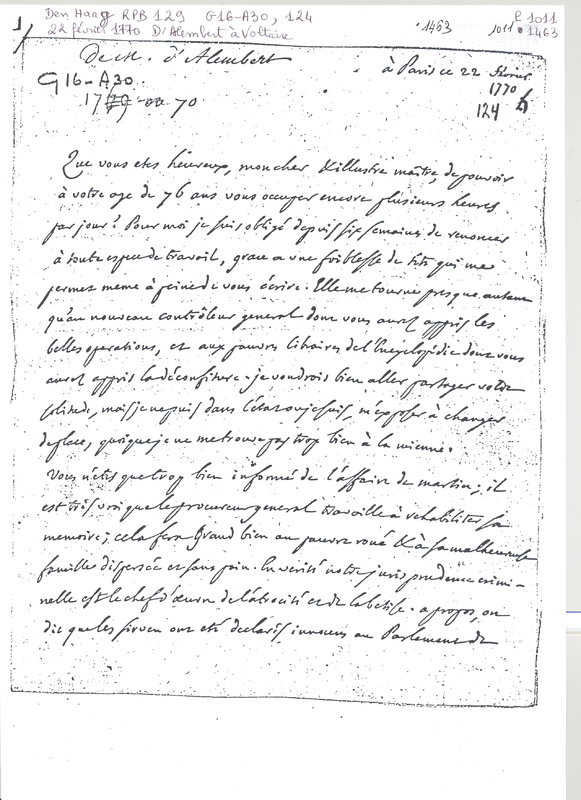 Den Haag RPB 129 G16-A30, 124
22 février 1770 D'Alembert à Voltaire
• 1463
P. 1011
1011 • 1463
1/
De M. d'Alembert
à Paris ce 22 février
1770
G16-A30.
70
124
Que vous etes heureux, mon cher & illustre maître, de pouvoir
à votre age de 76 ans vous occuper encore plusieurs heures
par jour! Pour moi je suis obligé depuis six semaines de renoncer
à toute espece de travail, grace a une foiblesse de tête qui me
permet meme à peine de vous écrire. Elle me tourne presque autant
qu'au nouveau contrôleur general dont vous aurez appris les
belles operations, et aux pauvres libraires de l'Encyclopédie dont vous
aurez appris la déconfiture. je voudrois bien aller partager votre
solitude, mais je ne puis dans l'état où je suis, m'exposer à changer
de place, quoique je ne me trouve pas trop bien à la mienne.
Vous n'étes que trop bien informé de l'affaire de martin; il
est très vrai que le procureur general travaille à rehabiliter sa
memoire; cela fera Grand bien au pauvre roué & à sa malheureuse
famille dispersée et sans pain. En vérité notre jurisprudence crimi-
nelle est le chef d'œuvre de l'atrocité et de la betise. a propos, on
dit que les sirven ont été declarés innocens au Parlement de